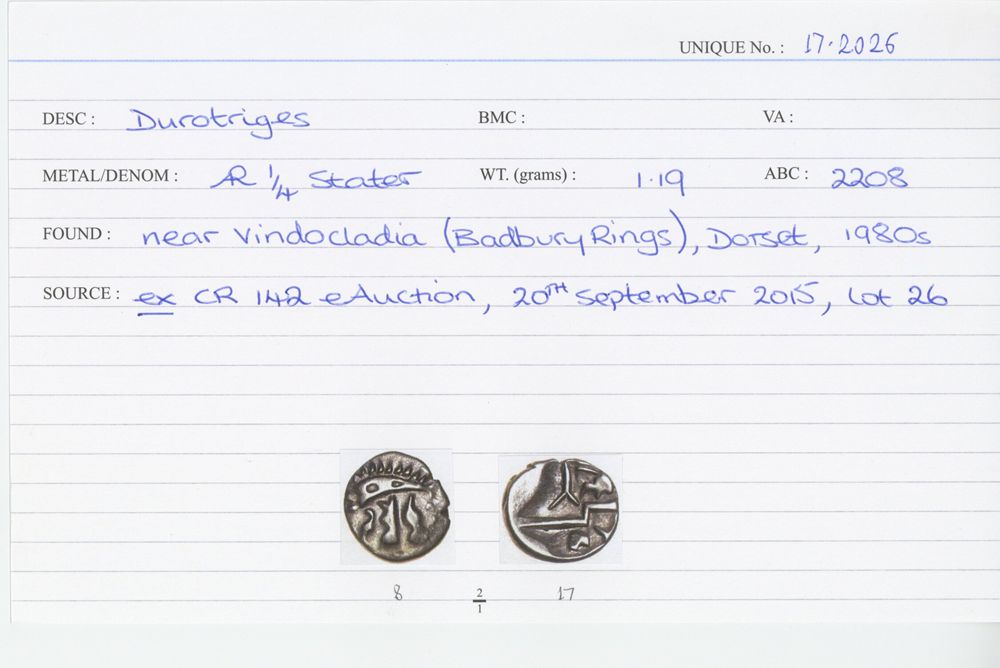 UNIQUE No. : 17.2026
DESC : Durotriges BMC : VA :
METAL/DENOM : AR 1/4 Stater WT. (grams) : 1.19 ABC : 2208
FOUND : near Vindocladia (Badbury Rings), Dorset, 1980s
SOURCE : ex CR 142 eAuction, 20TH September 2015, lot 26
8 2/1 17